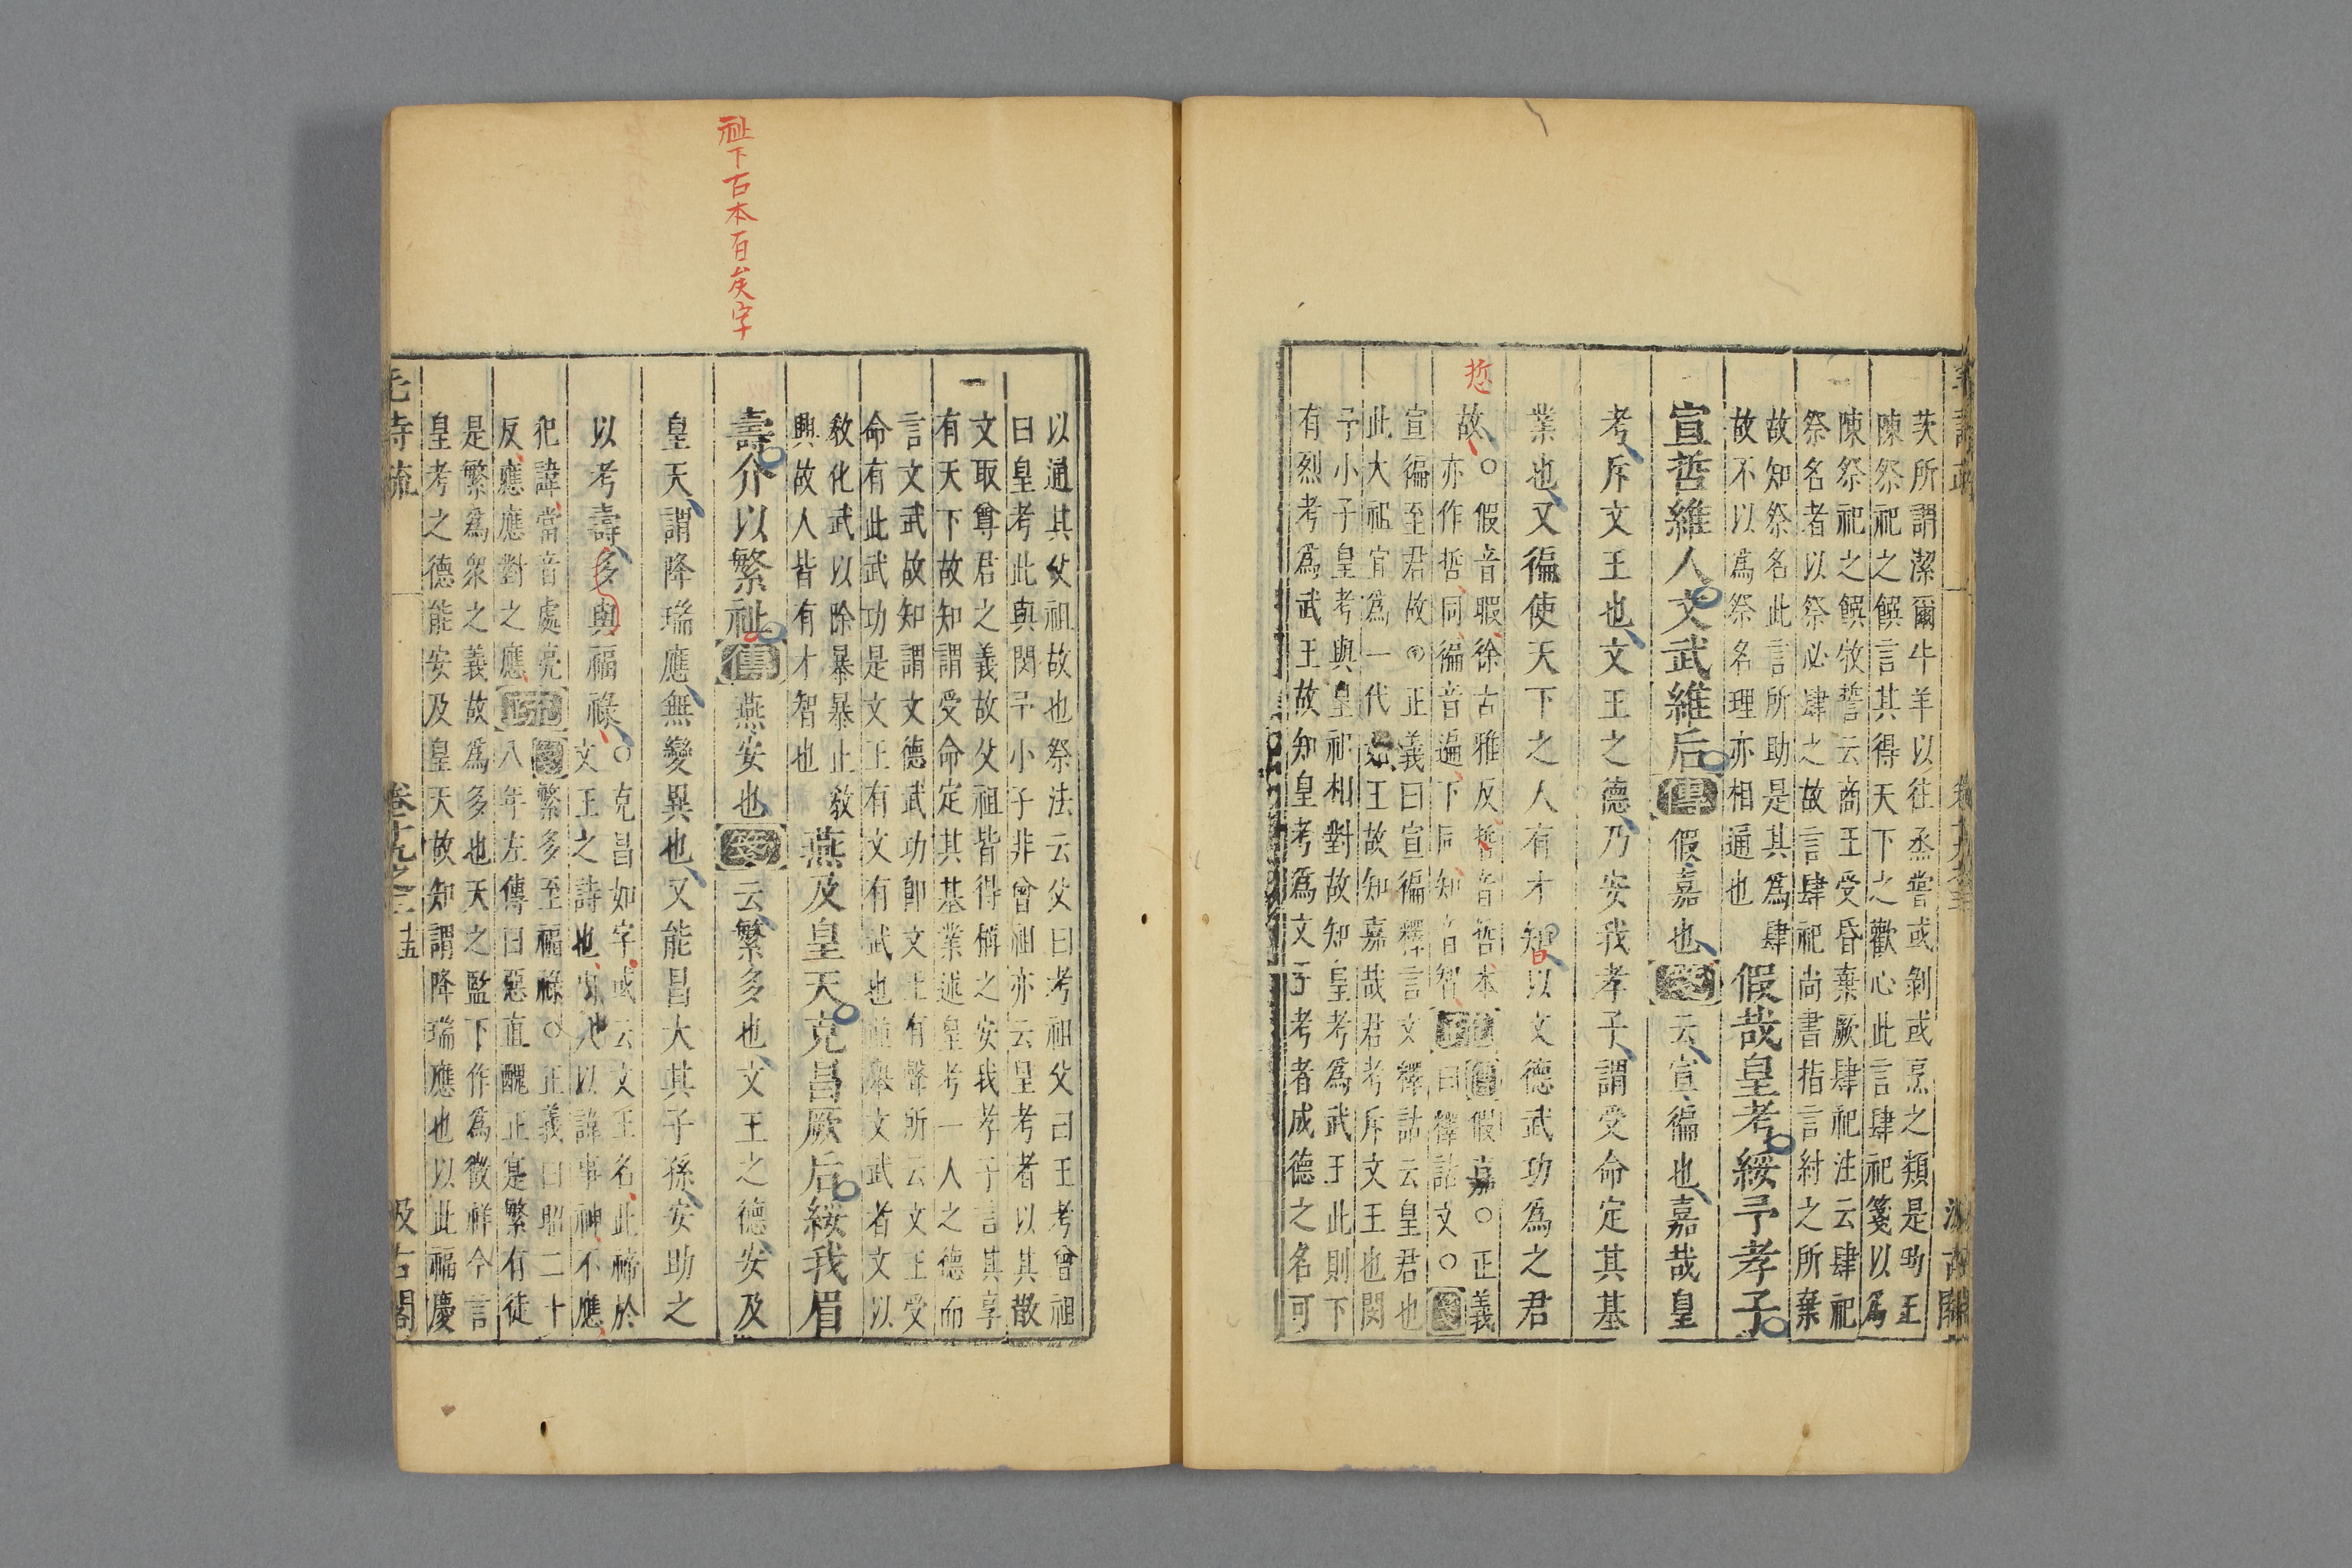 茨所謂潔爾牛羊以往烝嘗或剝或烹之類是助王
陳祭祀之饌言其得天下之歡心此言肆祀箋以爲
陳祭祀之饌牧誓云商王受昏棄厥肆祀注云肆祀
祭名者以祭必肆之故言肆祀尚書指言紂之所棄
故知祭名此言所助是其爲肆
故不以爲祭名理亦相通也
假哉皇考綏予孝子
宣哲維人文武維后傳假嘉也箋云宣徧也嘉哉皇
考斥文王也文王之德乃安我孝子謂受命定其基
業也又徧使天下之人有才知以文德武功爲之君
哲
故
○假音暇徐古雅反哲音哲本
亦作哲同徧音遍下同知音智
疏傳假嘉○正義
曰釋詁文○箋
宣徧至君故○正義曰宣徧釋言文釋詁云皇君也
此大祖宜爲一代始王故知嘉哉君考斥文王也閔
予小子皇考與皇祖相對故知皇考爲武王此則下
有烈考爲武王故知皇考爲文王考者成德之名可
以通其父祖故也祭法云父曰考祖父曰王考曾祖
曰皇考此與閔予小子非曾祖亦云皇考者以其散
文取尊君之義故父祖皆得稱之安我孝子言其享
有天下故知謂受命定其基業述皇考一人之德而
言文武故知謂文德武功卽文王有聲所云文王受
命有此武功是文王有文有武也並舉文武者文以
敎化武以除暴暴止敎
興故人皆有才智也
燕及皇天克昌厥后綏我眉
壽介以繁祉傳燕安也箋云繁多也文王之德安及
祉下古本有矣字
皇天謂降瑞應無變異也又能昌大其子孫安助之
以考壽多與福祿
○克昌如字或云文王名此禘於
文王之詩也周人以諱事神不應
犯諱當音處亮
反應應對之應
疏箋繁多至福祿○正義曰昭二十
八年左傳曰惡直醜正寔繁有徒
是繁爲衆之義故爲多也天之監下作爲徵祥今言
皇考之德能安及皇天故知謂降瑞應也以此福慶
毛詩疏
卷十九之三
十五
汲古閣